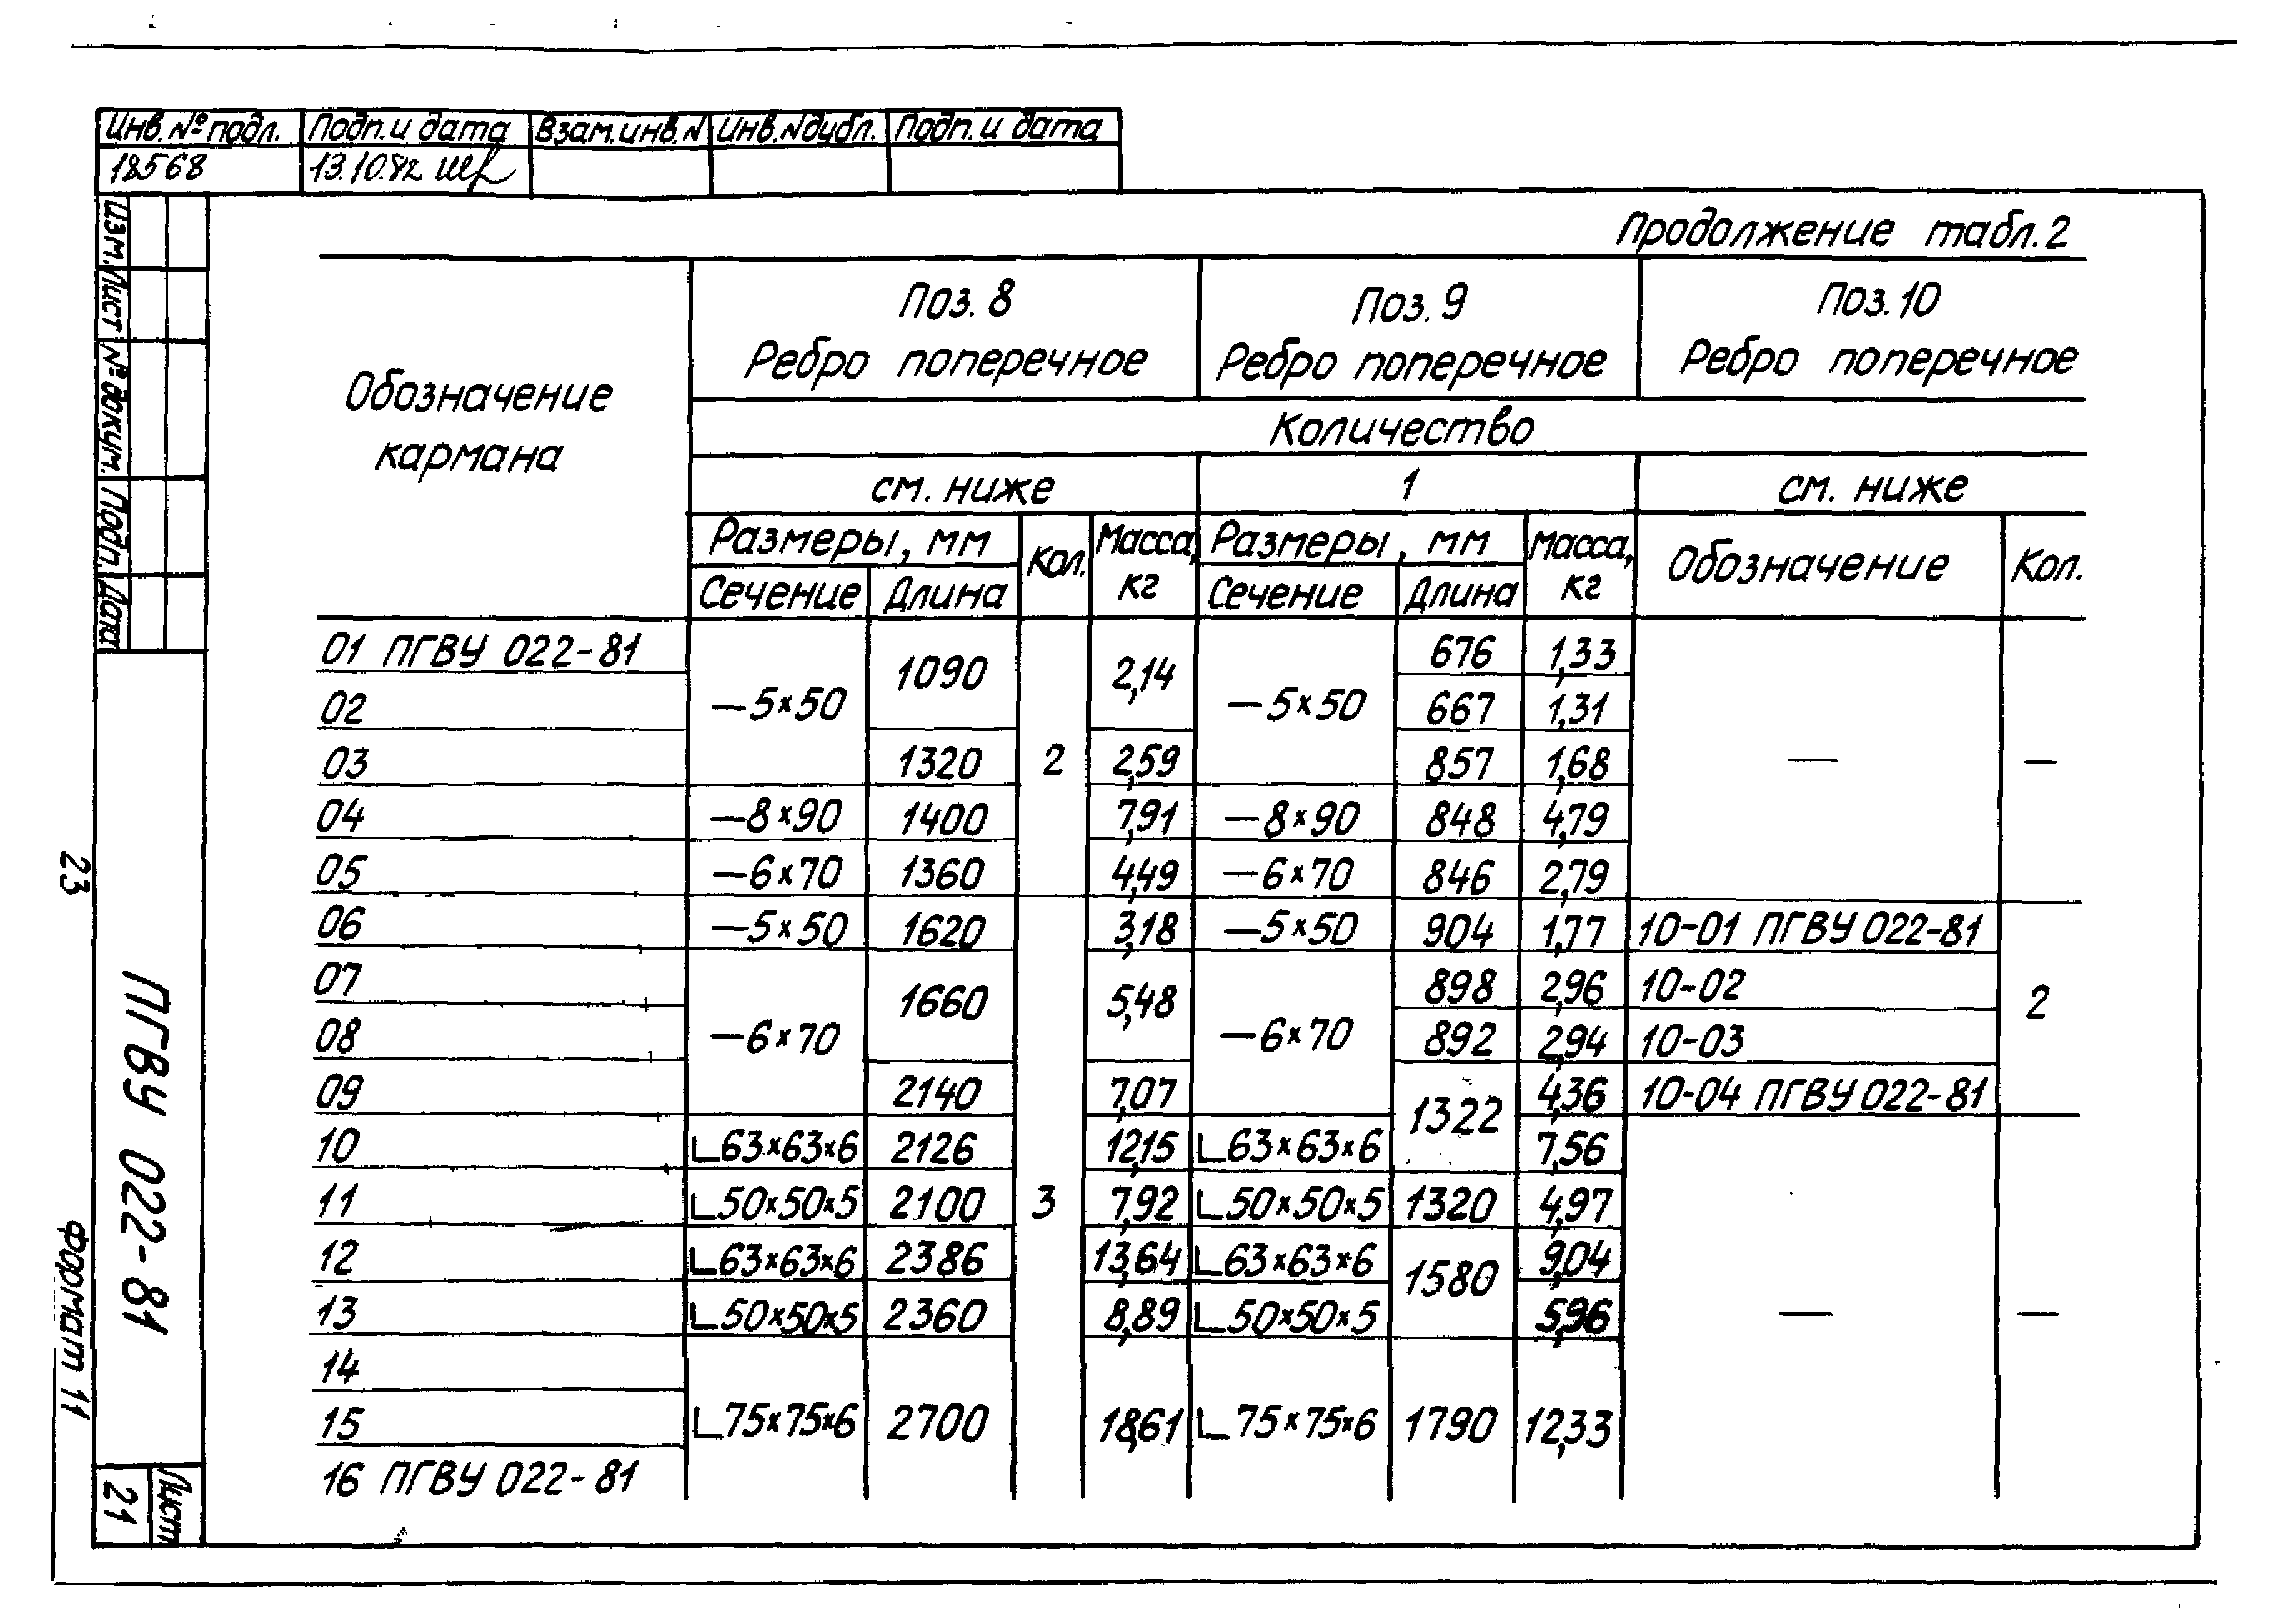 Инв.№ подл. Подп. и дата Взам.инв.N Инв.N дубл. Подп. и дата
18568 13.10.82
Изм. Лист № докум. Подп. Дата
Продолжение табл.2
Обозначение кармана
Поз. 8 Поз. 9 Поз. 10
Ребро поперечное Ребро поперечное Ребро поперечное
Количество
см. ниже 1 см. ниже
Размеры, мм Кол. Масса, кг Размеры, мм Масса, кг Обозначение Кол.
Сечение Длина Сечение Длина
01 ПГВУ 022-81 1090 2,14 676 1,33
02 —5×50 —5×50 667 1,31
03 1320 2 2,59 857 1,68 — —
04 —8×90 1400 7,91 —8×90 848 4,79
05 —6×70 1360 4,49 —6×70 846 2,79
06 —5×50 1620 3,18 —5×50 904 1,77 10-01 ПГВУ 022-81
07 1660 5,48 898 2,96 10-02 2
08 —6×70 —6×70 892 2,94 10-03
09 2140 7,07 1322 4,36 10-04 ПГВУ 022-81
10 ∟63×63×6 2126 12,15 ∟63×63×6 7,56
11 ∟50×50×5 2100 3 7,92 ∟50×50×5 1320 4,97
12 ∟63×63×6 2386 13,64 ∟63×63×6 1580 9,04
13 ∟50×50×5 2360 8,89 ∟50×50×5 5,96 — —
14
15 ∟75×75×6 2700 18,61 ∟75×75×6 1790 12,33
16 ПГВУ 022-81
23
ПГВУ 022-81
Формат 11
Лист
21